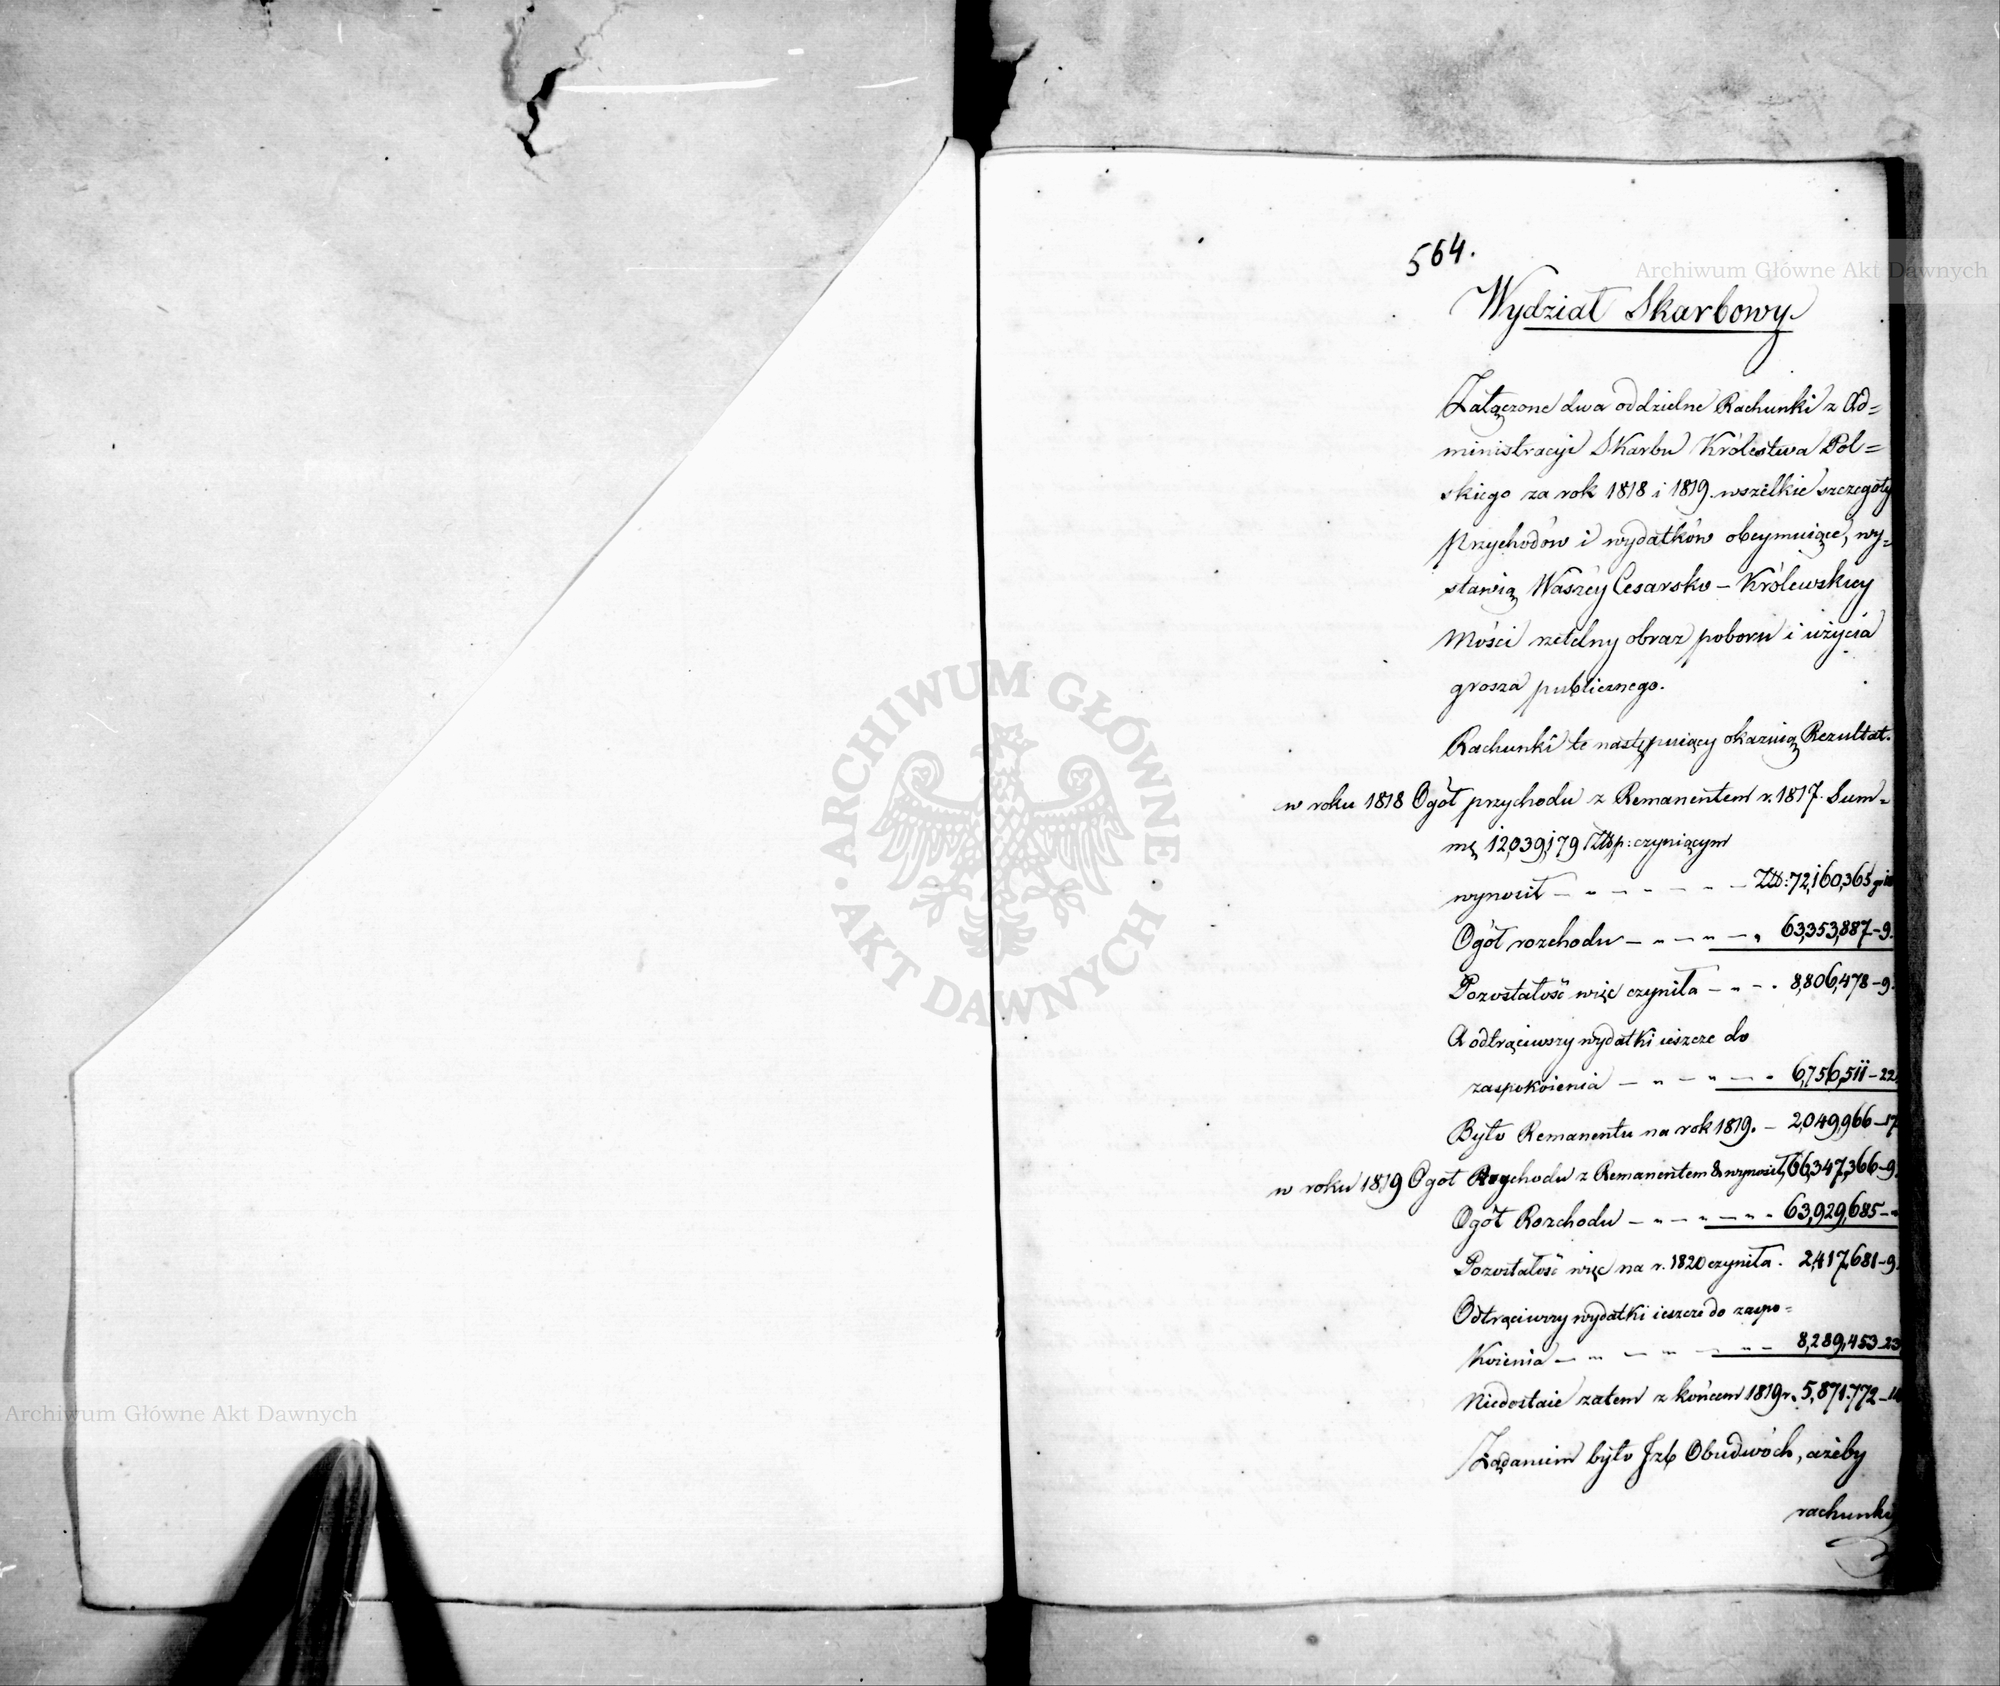 564.
Archiwum Główne Akt Dawnych
Wydział Skarbowy
Załączone dwa oddzielne Rachunki z Ad=
ministracyi Skarbu Królestwa Pol=
skiego za rok 1818 i 1819. wszelkie szczegoły
przychodów i wydatków obeymuiące, wy=
stawią Waszéy Cesarsko – Królewskiey
Mości rzetelny obraz poboru i użycia
grosza publicznego.
Rachunki te następuiący okazuią Rezultat.
w roku 1818 Ogół przychodu z Remanentem r. 1817. Sum=
mę 12,039,179 Złłp: czyniącym
wynosił – – – – Złł: 72,160,365 g
Ogół rozchodu – – – 63,353,887–9.
Pozostałość więc czyniła – – – 8,806,478–9
A odtrąciwszy wydatki ieszcze do
zaspokoienia – – – – 6,756,511–22
Było Remanentu na rok 1819. – 2,049,966–17
w roku 1819 Ogół Przychodu z Remanentem wynosił, 66,347,366–9
Ogół Rozchodu – – – – 63,929,685–
Pozostałość więc na r. 1820 czyniła. 2,417,681–9.
Odtrąciwszy wydatki ieszcze do zaspo=
koienia – – – – 8,289,453–23
Niedostaie zatem z końcem 1819 r. 5,871,772–14
Żądaniem było Jzb Obudwóch, ażeby
rachunki
ARCHIWUM GŁÓWNE
AKT DAWNYCH
Archiwum Główne Akt Dawnych